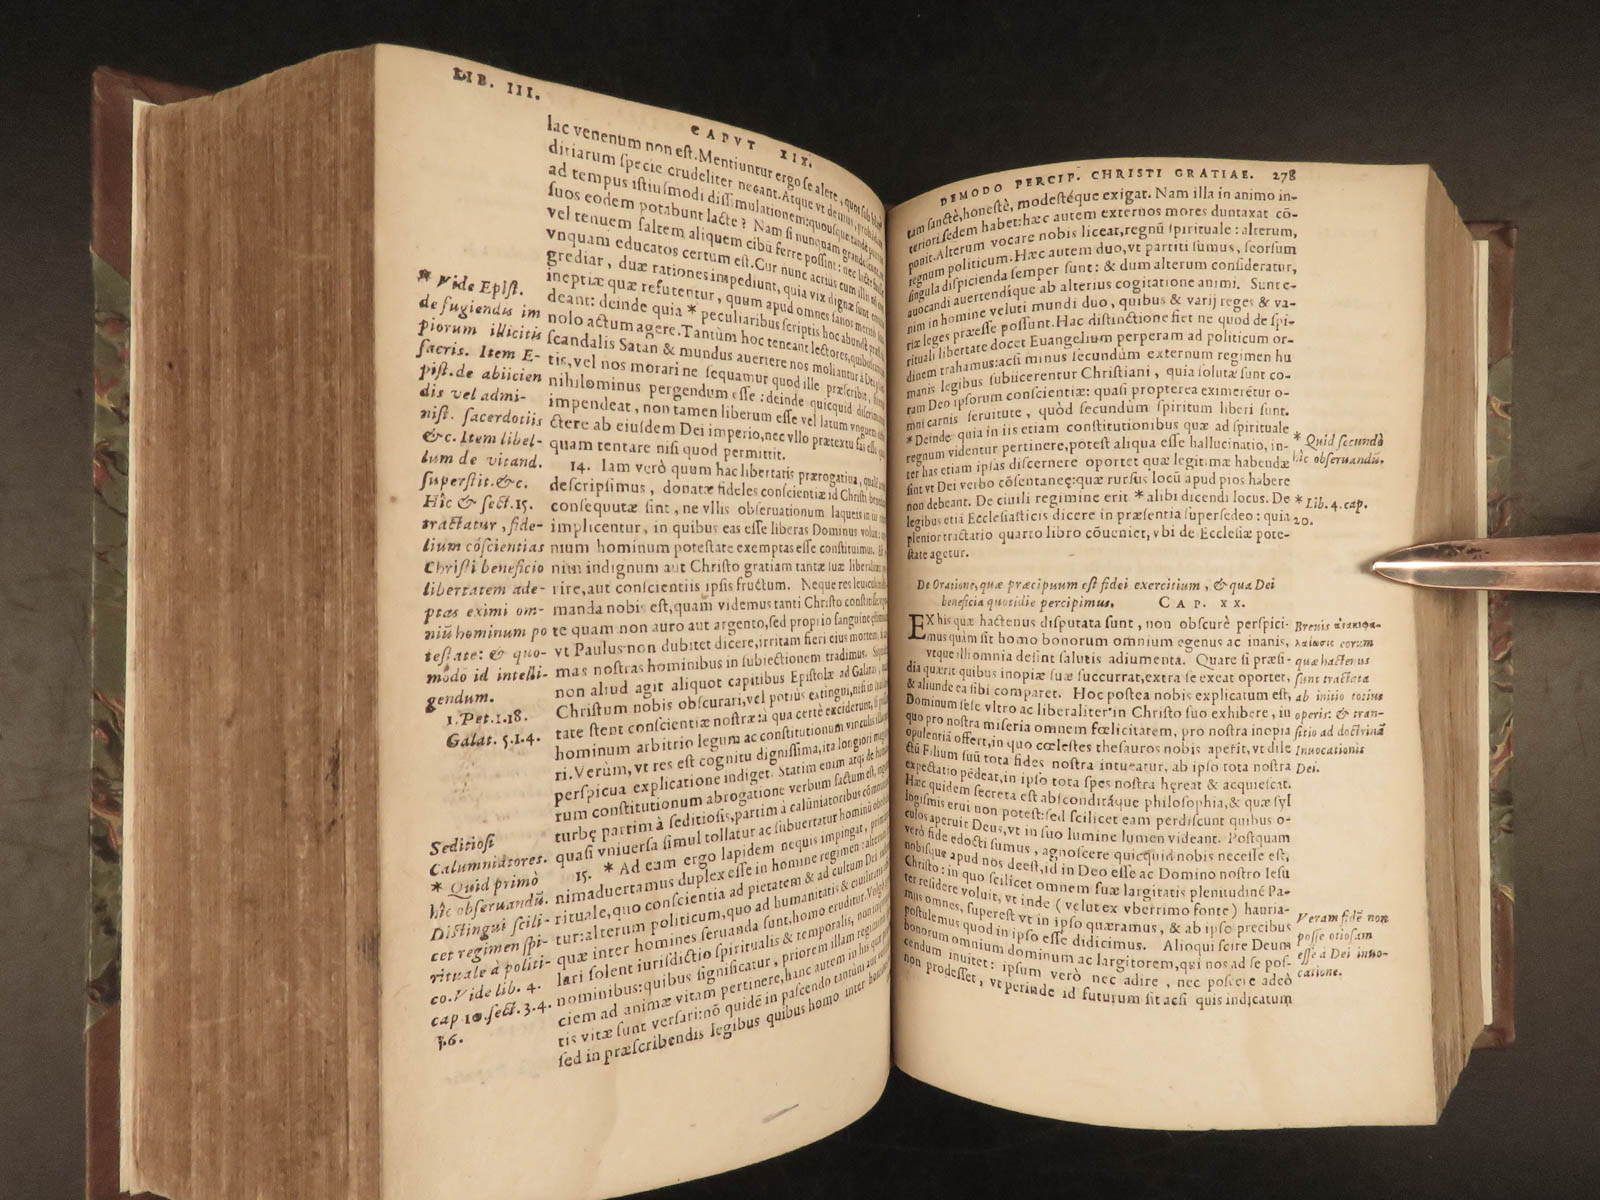 LIB. III.
CAPVT XIX.
lac venenum non est. Mentiuntur ergo se alere, quos sub
ditiarum specie crudeliter necant. Atque vt demus,
ad tempus istiusmodi dissimulationem: quousque tandē
suos eodem potabunt lacte? Nam si nunquam
vel tenuem saltem aliquem cibū ferre possint: nec lacte
vnquam educatos certum est. Cur nunc acrius cum illis nō
grediar, duæ rationes impediunt, quia vix dignæ sunt
ineptiæ quæ refutentur, quum apud omnes sanos
deant: deinde quia * peculiaribus scriptis hoc abundè
nolo actum agere. Tantùm hoc teneant lectores, quibuscun
scandalis Satan & mundus auertere nos moliantur à Dei
tis, vel nos morari ne sequamur quod ille præscribit,
nihilominus pergendum esse: deinde quicquid discriminis
impendeat, non tamen liberum esse vel latum vnguem
ctere ab eiusdem Dei imperio, nec vllo prætextu fas esse
quam tentare nisi quod permittit.
14. Iam verò quum hac libertatis prærogatiua, qualē
descripsimus, donatæ fideles conscientiæ id Christi
consequutæ sint, ne vllis obseruationum laqueis in iis
implicentur, in quibus eas esse liberas Dominus voluit:
nium hominum potestate exemptas esse constituimus.
nim indignum aut Christo gratiam tantæ suæ liberalitatis
rire, aut conscientiis ipsis fructum. Neque res leuicula
manda nobis est, quam videmus tanti Christo constitisse:
te quam non auro aut argento, sed proprio sanguine
vt Paulus non dubitet dicere, irritam fieri eius mortem,
mas nostras hominibus in subiectionem tradimus.
non aliud agit aliquot capitibus Epistolæ ad Galatas,
Christum nobis obscurari, vel potius extingui, nisi in
tate stent conscientiæ nostræ: à qua certè exciderunt, si
hominum arbitrio legum ac constitutionum vinculis
ri. Verùm, vt res est cognitu dignissima, ita longiori
perspicua explicatione indiget. Statim enim atque de
rum constitutionum abrogatione verbum factum est,
turbę partim à seditiosis, partim à calūniatoribus
quasi vniuersa simul tollatur ac subuertatur hominū
15. * Ad eam ergo lapidem nequis impingat,
nimaduertamus duplex esse in homine regimen:
rituale, quo conscientia ad pietatem & ad cultum Dei
tur: alterum politicum, quo ad humanitatis & ciuilitatis
quæ inter homines seruanda sunt, homo eruditur.
lari solent iurisdictio spiritualis & temporalis, non
nominibus: quibus significatur, priorem illam regiminis
ciem ad animæ vitam pertinere, hanc autem in his quæ
tis vitæ sunt versari: nō quidē in pascendo tantùm aut
sed in præscribendis legibus quibus homo inter
* Vide Epist.
de fugiendis im
piorum illicitis
sacris. Item E-
pist. de abiicien
dis vel admi-
nist. sacerdotiis
&c. Item libel-
lum de vitand.
superstit. &c.
Hîc & sect. 15.
tractatur, fide-
lium cōscientias
Christi beneficio
libertatem ade-
ptas eximi om-
niū hominum po
testate: & quo-
modo id intelli-
gendum.
1. Pet. 1. 18.
Galat. 5. 1. 4.
Seditiosi
Calumniatores.
* Quid primò
hîc obseruandū.
Distingui scili-
cet regimen spi-
rituale à politi-
co. Vide lib. 4.
cap 10. sect. 3. 4.
5. 6.
DE MODO PERCIP. CHRISTI GRATIAE. 278
tam sanctè, honestè, modestéque exigat. Nam illa in animo in-
teriori sedem habet: hæc autem externos mores duntaxat cō-
ponit. Alterum vocare nobis liceat, regnū spirituale: alterum,
regnum politicum. Hæc autem duo, vt partiti sumus, seorsum
singula dispicienda semper sunt: & dum alterum consideratur,
auocandi auertendíque ab alterius cogitatione animi. Sunt e-
nim in homine veluti mundi duo, quibus & varij reges & va-
riæ leges præesse possunt. Hac distinctione fiet ne quod de spi-
rituali libertate docet Euangelium perperam ad politicum or-
dinem trahamus: acsi minus secundùm externum regimen hu
manis legibus subiicerentur Christiani, quia solutæ sunt co-
ram Deo ipsorum conscientiæ: quasi propterea eximerētur o-
mni carnis seruitute, quòd secundùm spiritum liberi sunt.
* Deinde quia in iis etiam constitutionibus quæ ad spirituale
regnum videntur pertinere, potest aliqua esse hallucinatio, in-
ter has etiam ipsas discernere oportet quæ legitimæ habendæ
sint vt Dei verbo cōsentaneę: quæ rursus locū apud pios habere
non debeant. De ciuili regimine erit * alibi dicendi locus. De
legibus etiā Ecclesiasticis dicere in præsentia supersedeo: quia
plenior tractatio quarto libro cōueniet, vbi de Ecclesiæ pote-
state agetur.
* Quid secundò
hîc obseruandū.
* Lib. 4. cap.
20.
De Oratione, quæ præcipuum est fidei exercitium, & qua Dei
beneficia quotidie percipimus. CAP. XX.
EX his quæ hactenus disputata sunt, non obscurè perspici-
mus quàm sit homo bonorum omnium egenus ac inanis,
vtque illi omnia desint salutis adiumenta. Quare si præsi-
dia quærit quibus inopiæ suæ succurrat, extra se exeat oportet,
& aliunde ea sibi comparet. Hoc postea nobis explicatum est,
Dominum sese vltro ac liberaliter in Christo suo exhibere, in
quo pro nostra miseria omnem fœlicitatem, pro nostra inopia
opulentiā offert, in quo cœlestes thesauros nobis aperit, vt dile
ctū Filium suū tota fides nostra intueatur, ab ipso tota nostra
expectatio pēdeat, in ipso tota spes nostra hęreat & acquiescat.
Hæc quidem secreta est absconditáque philosophia, & quæ syl
logismis erui non potest: sed scilicet eam perdiscunt quibus o-
culos aperuit Deus, vt in suo lumine lumen videant. Postquam
verò fide edocti sumus, agnoscere quicquid nobis necesse est,
nobisque apud nos deest, id in Deo esse ac Domino nostro Iesu
Christo: in quo scilicet omnem suæ largitatis plenitudinē Pa-
ter residere voluit, vt inde (velut ex vberrimo fonte) hauria-
mus omnes, superest vt in ipso quæramus, & ab ipso precibus
postulemus quod in ipso esse didicimus. Alioqui scire Deum
bonorum omnium dominum ac largitorem, qui nos ad se pos-
cendum inuitet: ipsum verò nec adire, nec poscere adeò
non prodesset, vt perinde id futurum sit acsi quis indicatum
Breuis
eorum
quæ hactenus
sunt tractata
ab initio totius
operis: & tran-
sitio ad doctrinā
Inuocationis
Dei.
Veram fidē non
posse otiosam
esse à Dei inuo-
catione.